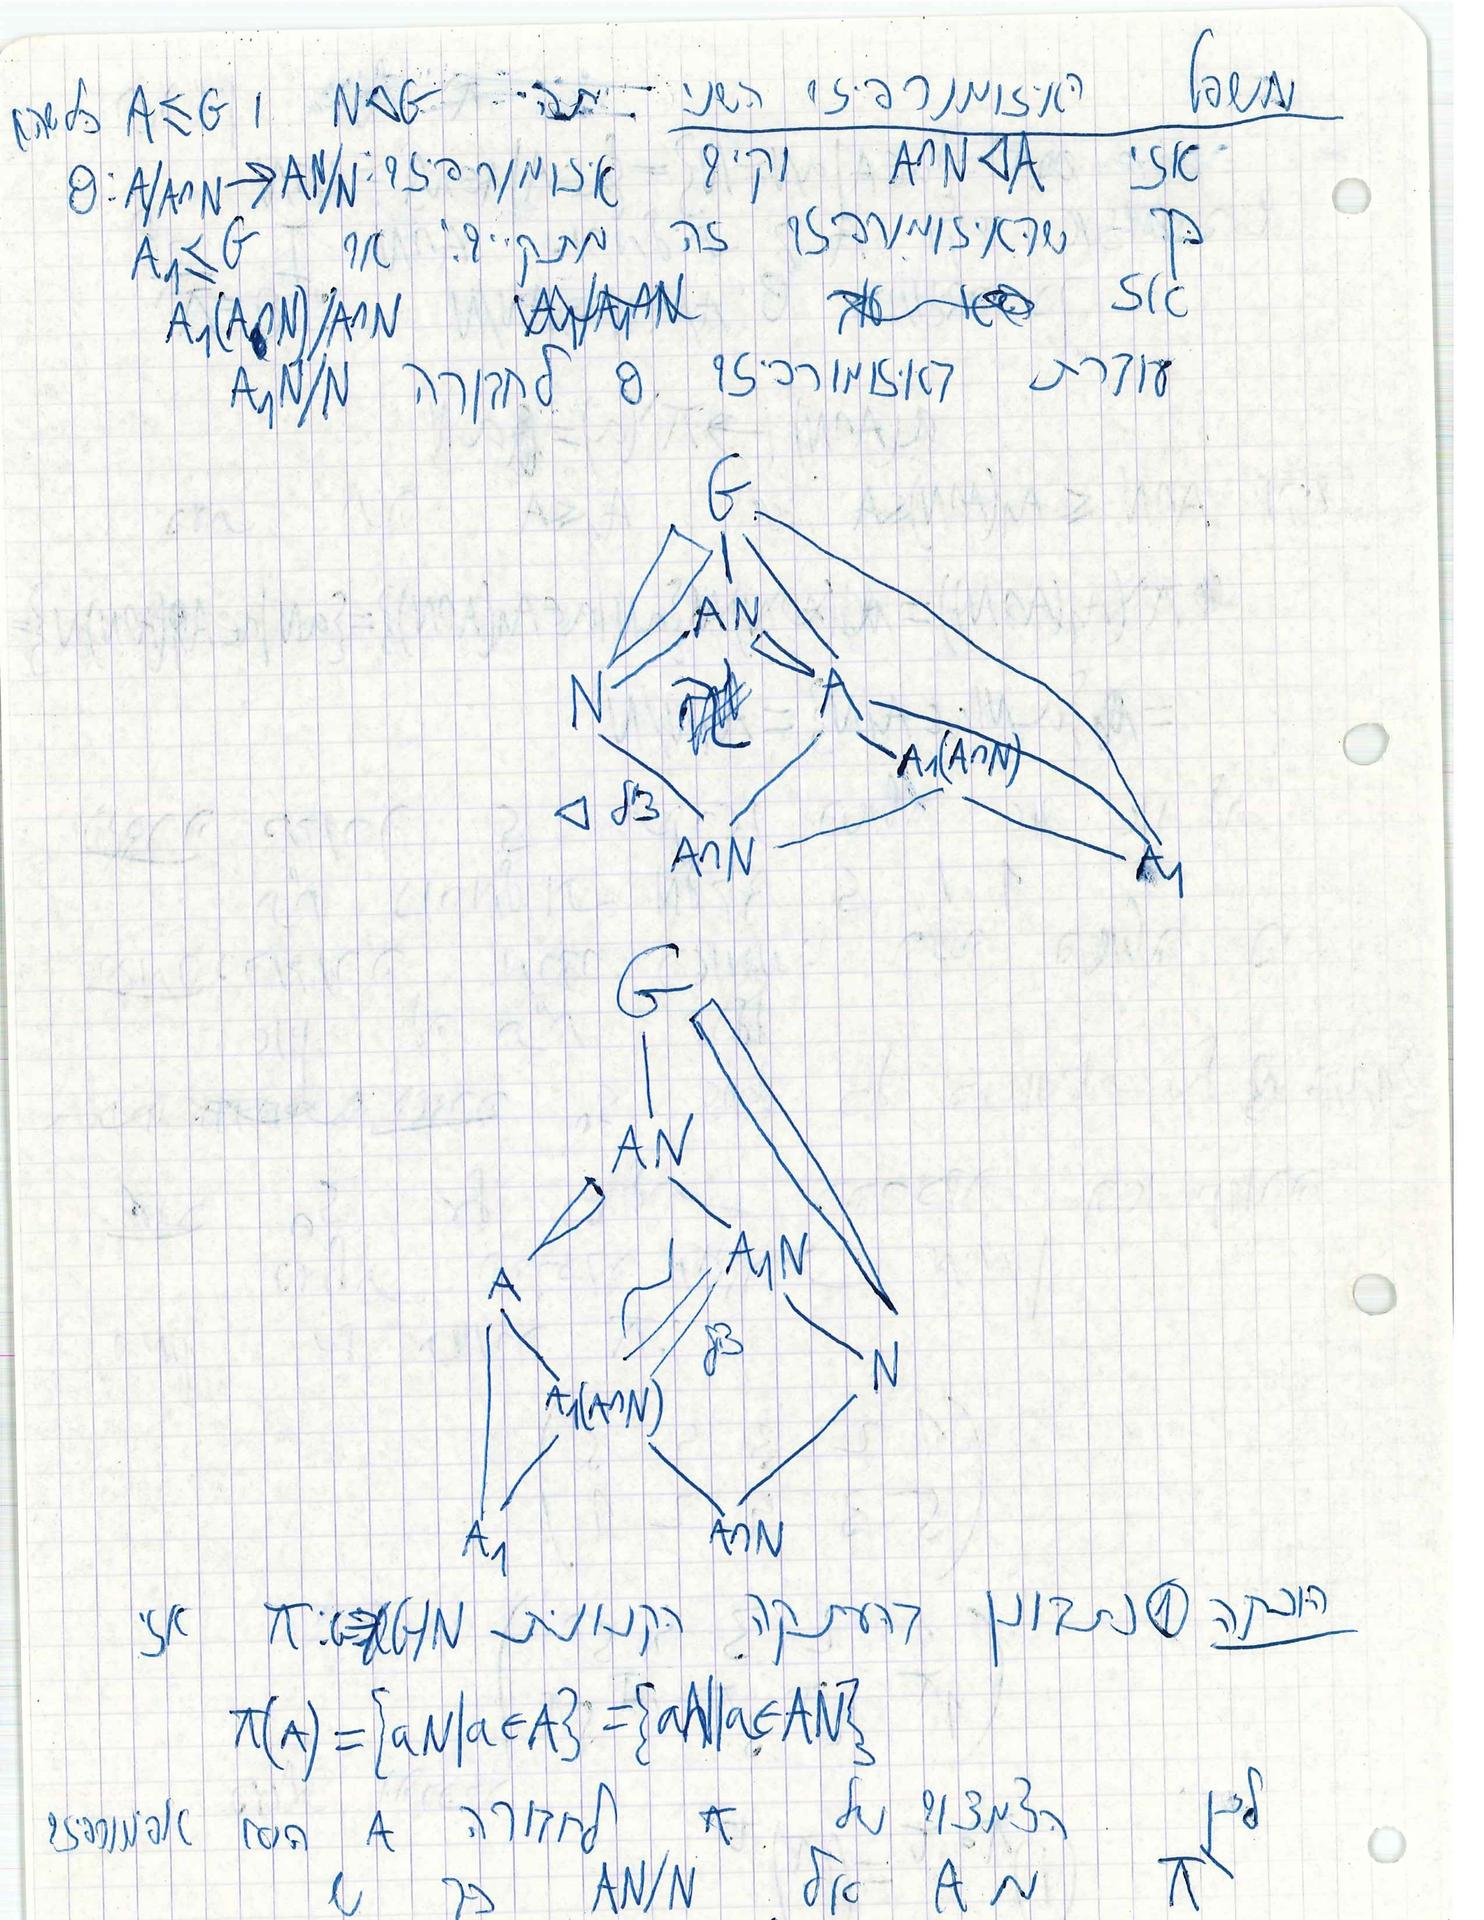 משפט האיזומורפיזם השני תהי N◁G ו A≤G כלשהא
אזי A∩N◁A וקיים איזומורפיזם θ: A/A∩N→AN/N
כך שהאיזומורפיזם זה מתקיים: אם A₁≤G
אז A₁(A∩N)/A∩N
עוברת באיזומורפיזם θ לחבורה A₁N/N
G
AN
N A
A₁(A∩N)
◁
A∩N A₁
G
AN
A A₁N
N
A₁(A∩N)
A₁ A∩N
הוכחה ① נתבונן בהעתקה הקנונית π: G→G/N אזי
π(A)={aN|a∈A}={aN|a∈AN}
לכן הצמצום של π לחבורה A הוא אפימורפיזם
π מ A אל AN/N כך ש